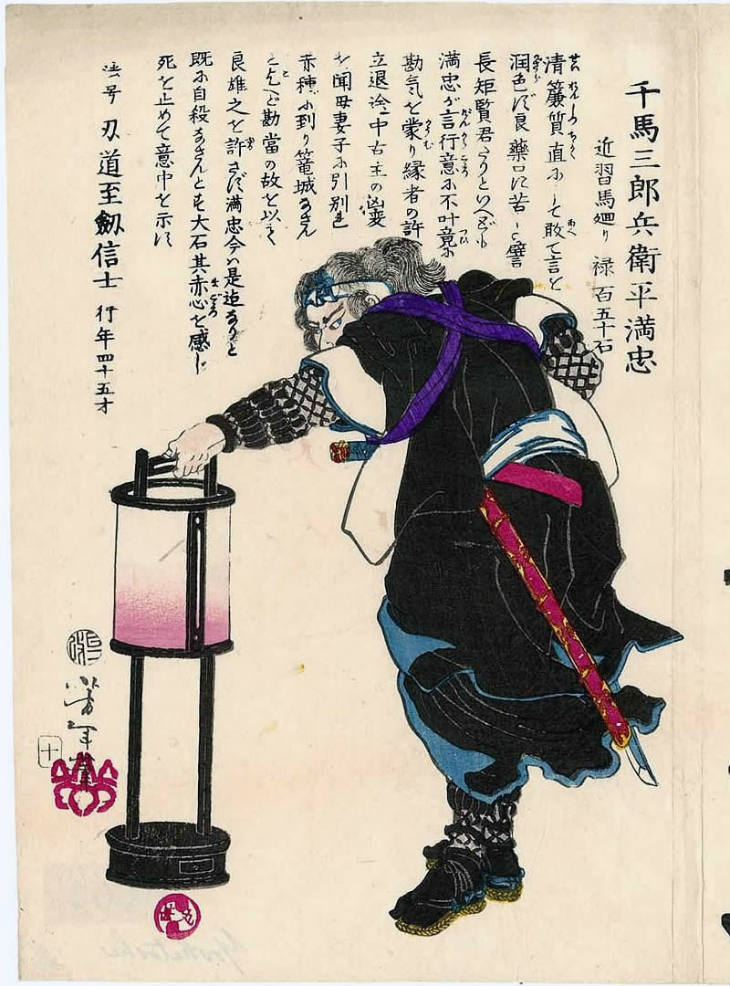 千馬三郎兵衛平満忠
近習馬廻り 禄百五十石
清簾質直にして敢て言を
潤色ず良藥口に苦しの譬
長矩賢君たりといへども
満忠が言行意に不叶竟に
勘気を蒙り縁者の許
立退途中古主の凶変
を聞母妻子に引別れ
赤穂に到り篭城なさん
といへど勘當の故を以て
良雄之を許さず満忠今は是迄なりと
既に自殺なさんとも大石其赤心を感じ
死を止めて意中を示す
法号 刃道至劔信士 行年四十五才
芳年筆
十